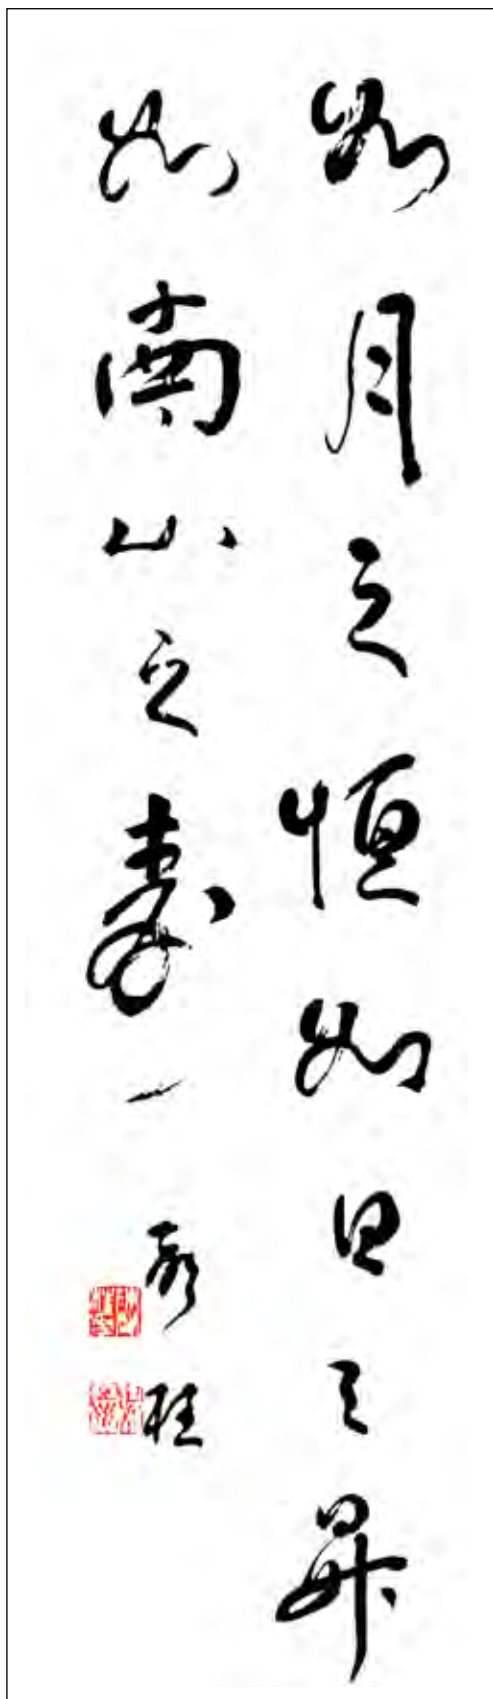 如月之恒如日之昇
如南山之壽 一